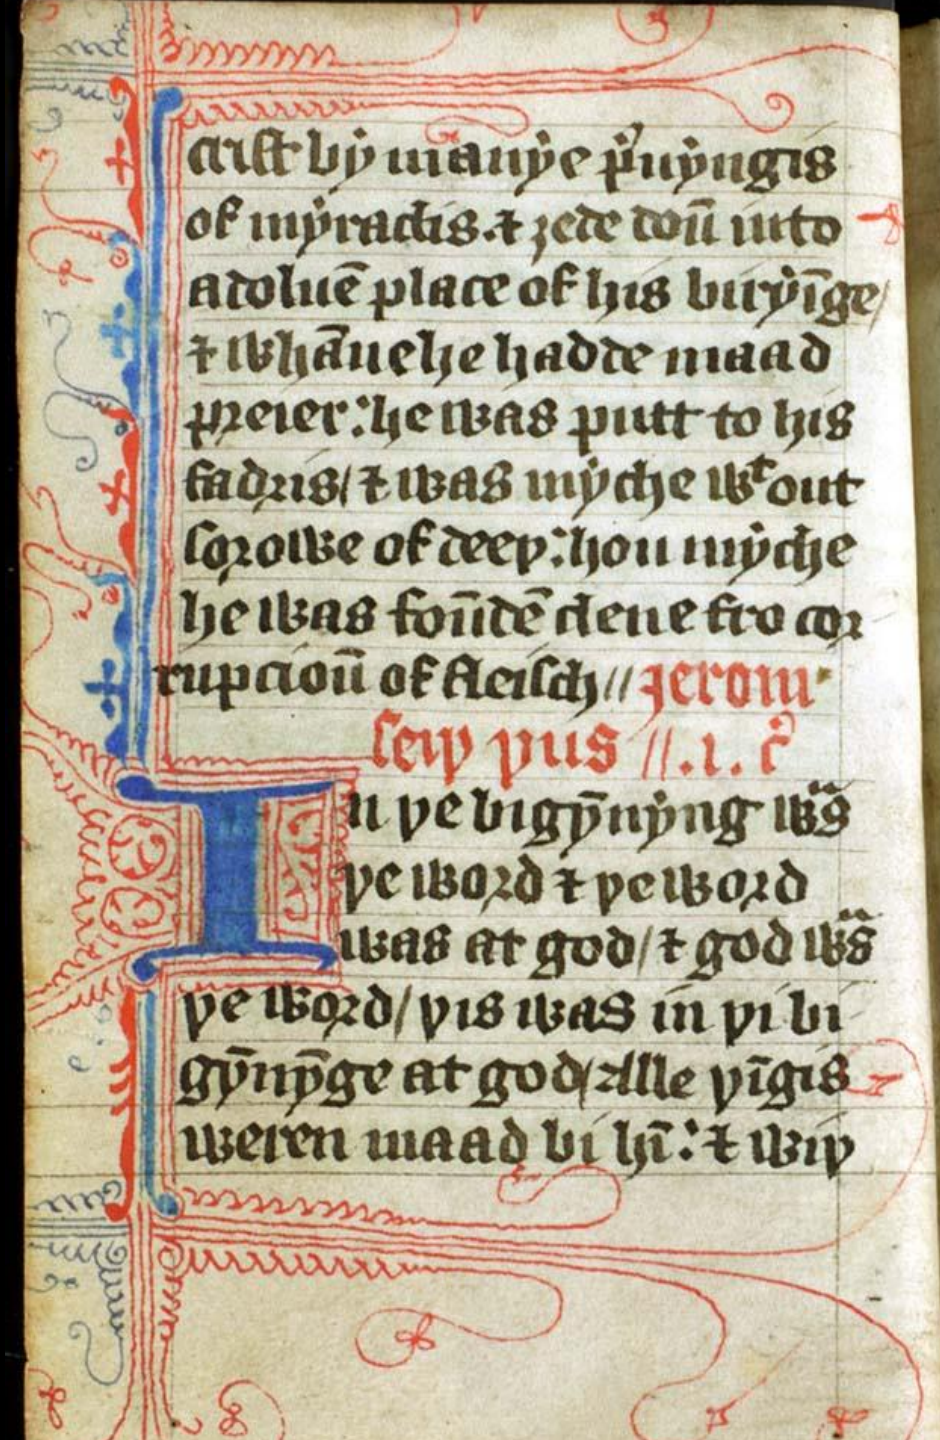 crist by manye p̾uyngis
of myraclis. ⁊ ȝede doū into
a doluē place of his biryīge/
⁊ whāne he hadde maad
preier: he was putt to his
fadris/ ⁊ was myche wᵗout
sorowe of deeþ: hou myche
he was foūdē clene fro cor
rupcioū of fleisch // Jerom
seiþ þus //.i. c̾
In þe bigȳnyng wᵃs
þe word ⁊ þe word
was at god/ ⁊ god wᵃs
þe word/ þis was in þi bi
gȳnȳge at god/ Alle þīgis
weren maad bi hī: ⁊ wiþ